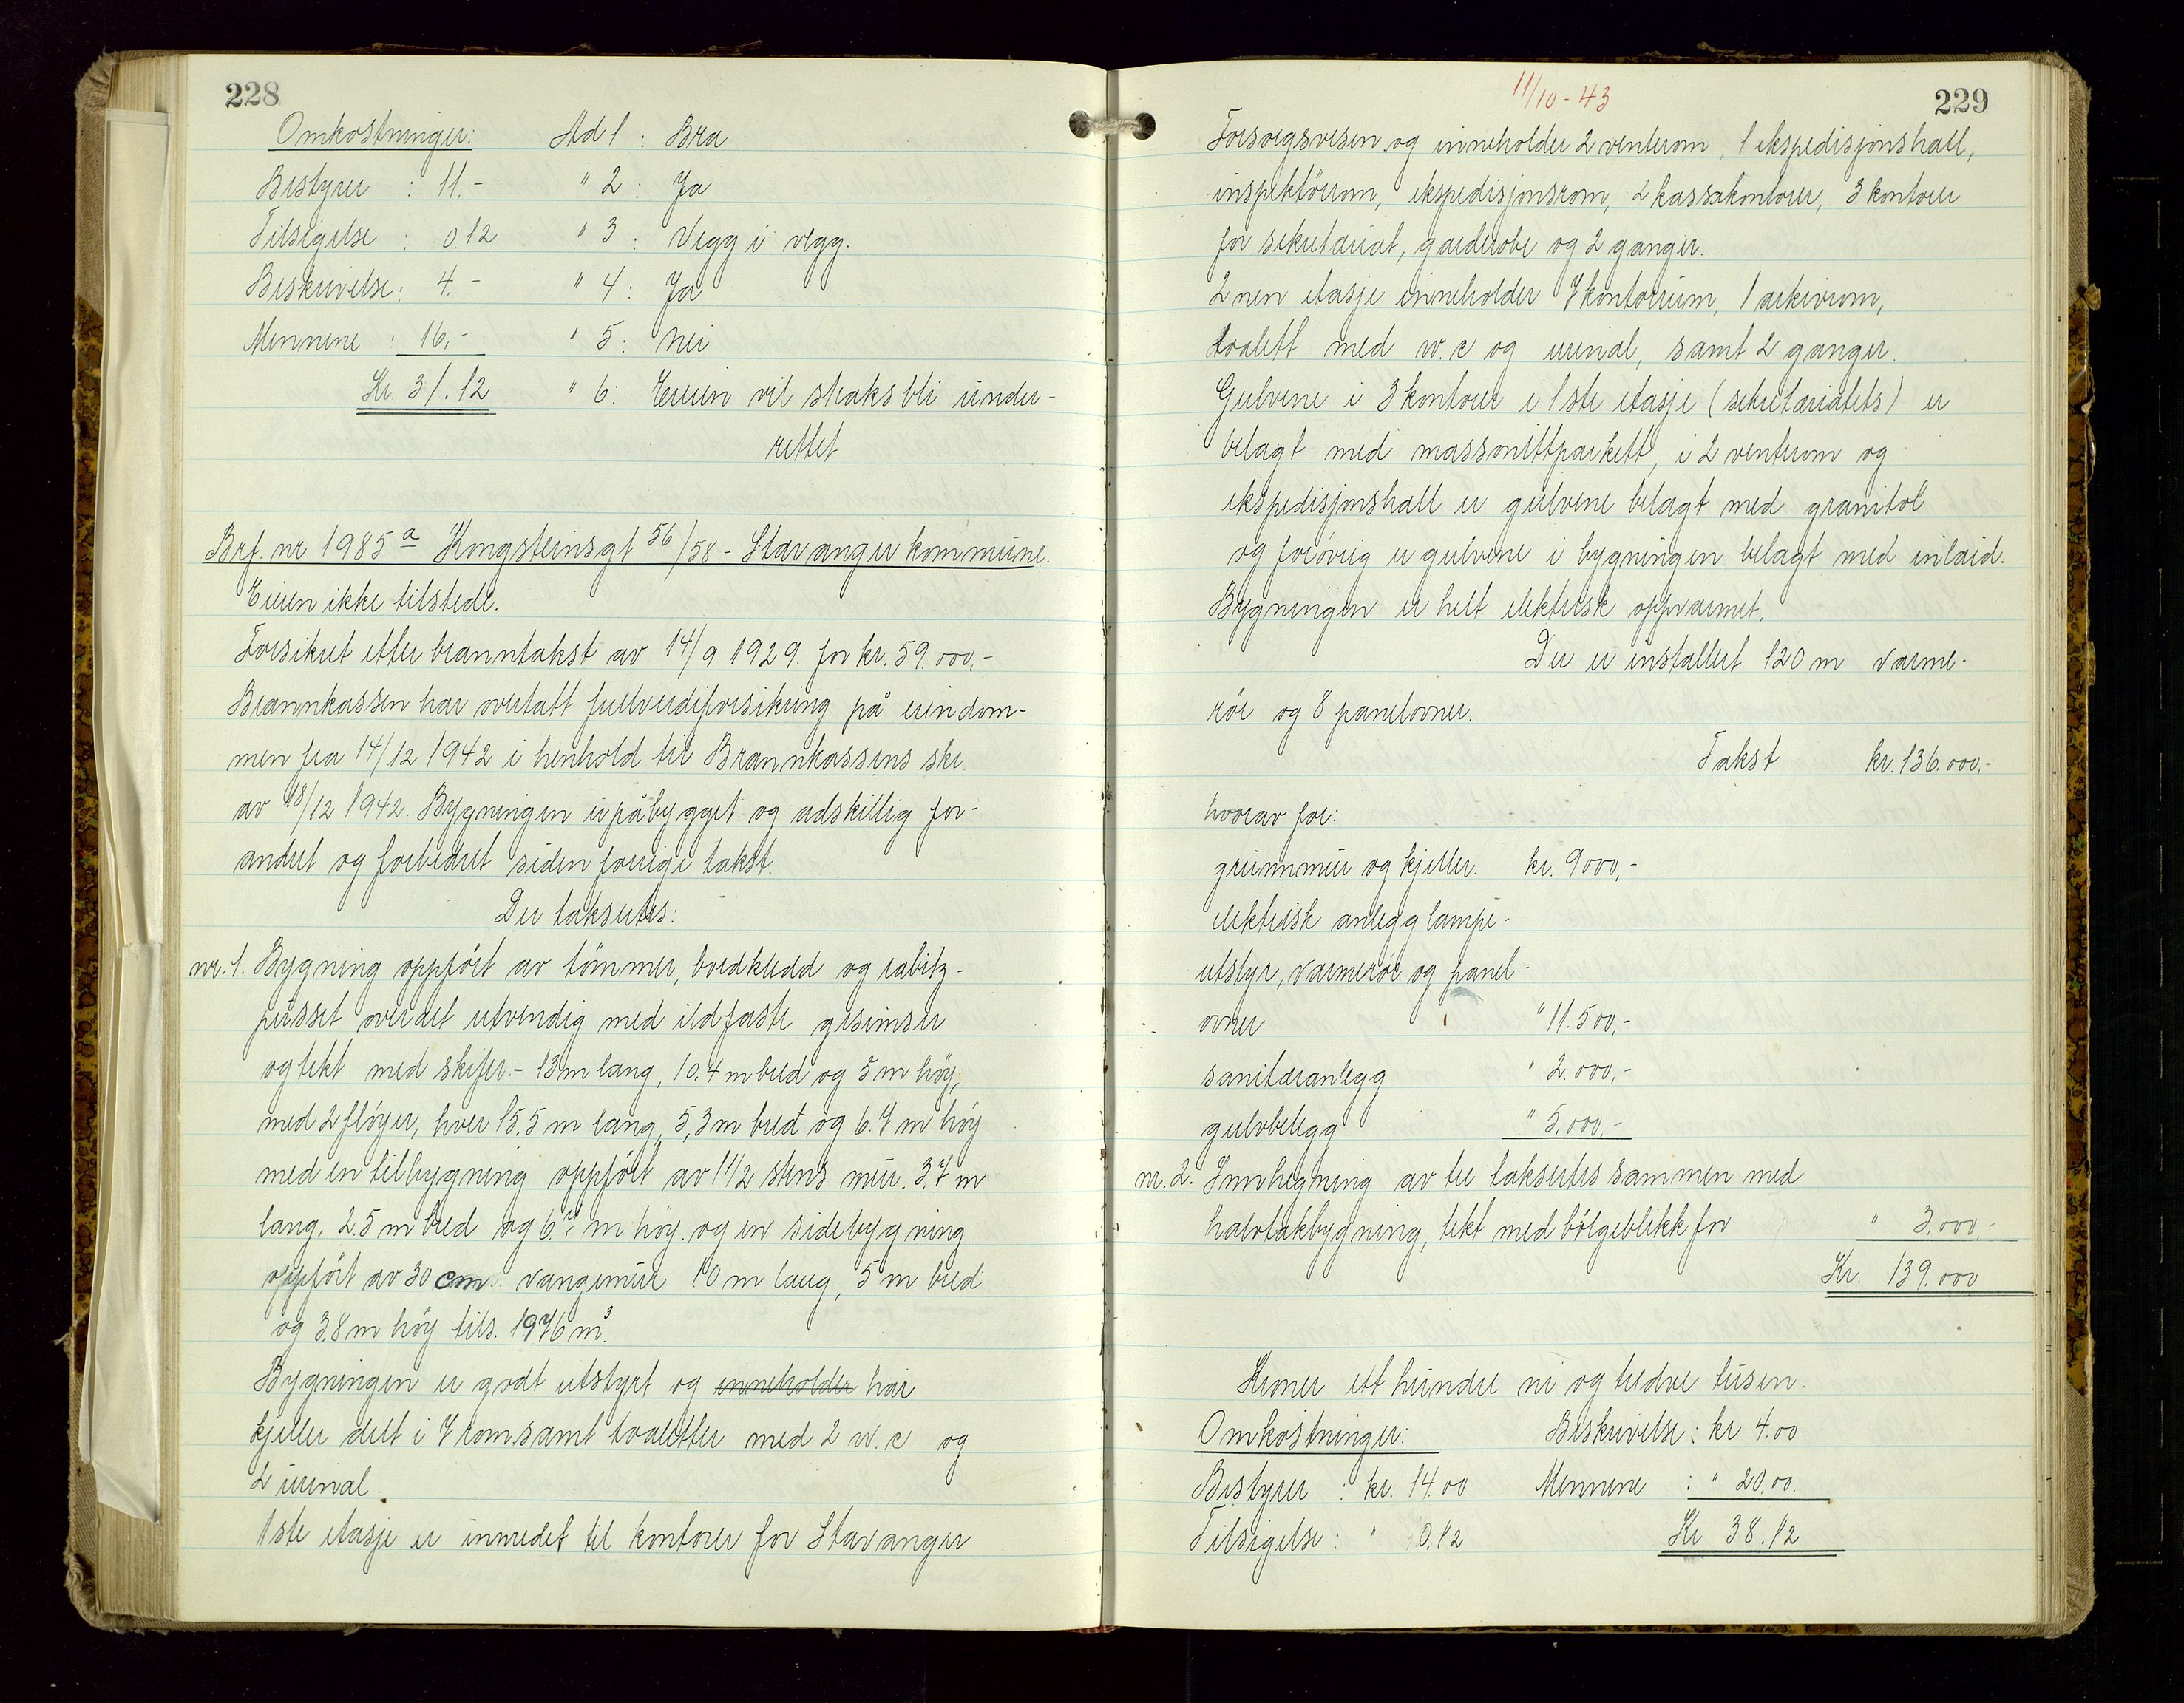 228
Omkostninger: Ad 1 : Bra
Bestyrer : 11.- " 2 : Ja
Tilsigelse : 0.12 " 3 : Vegg i vegg.
Beskrivelse : 4.- " 4 : Ja
Mennene : 16.- " 5 : Nei
Kr. 31.12 " 6 : Eieren vil straks bli under-
rettet
Brf. nr. 1985 a Kongsteinsgt 56/58 - Stavanger kommune.
Eieren ikke tilstede.
Forsikret etter branntakst av 14/9 1929. for kr. 59.000,-
Brannkassen har overtatt fullverdiforsikring på eiendom-
men fra 14/12 1942 i henhold til Brannkassens skr.
av 18/12 1942. Bygningen er påbygget og adskillig for-
andret og forbedret siden forrige takst.
Der takseres:
nr. 1. Bygning oppført av tömmer, bordkledd og rabitz-
pusset overalt utvendig med ildfaste gesimser
og tekt med skifer.- 13m lang, 10.4 m bred og 5 m höy,
med 2 fløyer, hver 15.5 m lang, 5,3 m bred og 6.7 m höy
med en tilbygning oppført av 1 1/2 stens mur. 3.7 m
lang, 2.5 m bred og 6.7 m höy. og en sidebygning
oppført av 30 cm. vangemur 10 m lang, 5 m bred
og 3.8 m höy tils. 1976 m³.
Bygningen er godt utstyrt og inneholder har
kjeller delt i 7 rom samt toaletter med 2 w.c og
2 urinal.
1ste etasje er innredet til kontorer for Stavanger
11/10 - 43
229
Forsorgsvesen og inneholder 2 venterom, 1 ekspedisjonshall,
inspektörrom, ekspedisjonsrom, 2 kassakontorer, 3 kontorer
for sekretariat, garderobe og 2 ganger.
2nen etasje inneholder 7 kontorrum, 1 arkivrom,
toalett med w.c og urinal, samt 2 ganger.
Gulvene i 3 kontorer i 1ste etasje (sekretariatets) er
belagt med massonittparkett, i 2 venterom og
ekspedisjonshall er gulvene belagt med granitol
og forövrig er gulvene i bygningen belagt med inlaid.
Bygningen er helt elektrisk oppvarmet.
Der er installert 120 m varme-
rör og 8 panelovner.
Takst kr. 136.000,-
hvorav for:
grunnmur og kjeller. kr. 9000,-
elektrisk anlegg lampe-
utstyr, varmerör og panel-
ovner " 11.500,-
sanitæranlegg " 2.000,-
gulvbelegg " 5.000,-
nr. 2. Innhegning av tre takseres sammen med
halvtakbygning, tekt med bölgeblikk for " 3.000,-
Kr. 139.000
Kroner ett hundre ni og tredve tusen.
Omkostninger: Beskrivelse : kr 4.00
Bestyrer : kr. 14.00 Mennene : " 20.00.
Tilsigelse : " 0.12 Kr 38.12